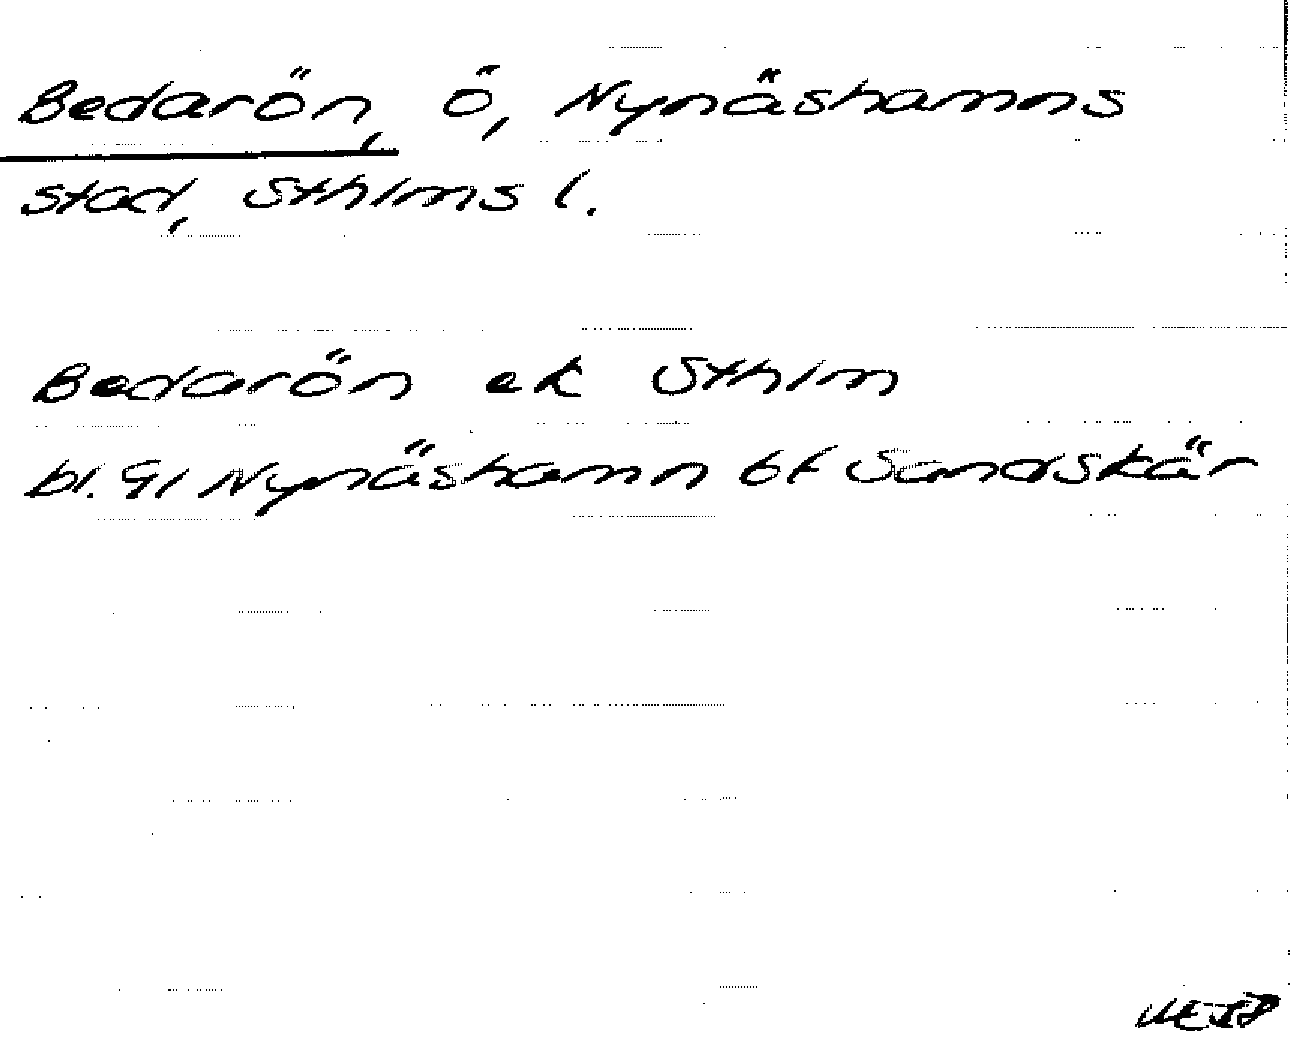 Bedarön, ö, Nynäshamns
stad, Sthlms l.
Bedarön ek Sthlm
bl. 91 Nynäshamn bf Sandskär